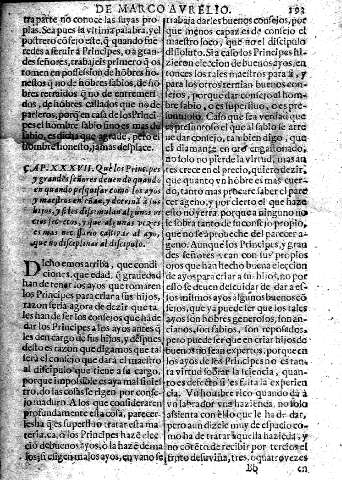 DE MARCO AVRELIO. 193
tra parte no conoce las suyas pro-
plas. Sea pues la vltima palabra, y el
postrero cõsejo este, q̃ quando huie
redes a seruir a Principes, o a gran-
des señores, trabajeis primero q̃ os
tengan en possession de hõbres ho-
nestos q̃ no de hõbres sabios, de hõ
bres retraidos q̃ no de entremeti-
dos, de hombres callados que no de
parleros, porq̃ en casa de los Princi-
pes el hombre sabio
sabio, es dicha que agrade, pero el
hombre honesto, jamas desplace.
CAP. XXXVII. Que los Principes
y grandes señores deuen de quando
en quando pesquisar como los ayos
y maestros en crian, y doctrinã à sus
hijos, y si les dissimulan algunos vi-
cios secretos, y que algunas vezes
es mas necessario castigar al ayo,
que no disciplinar al discipulo.
Dicho emos arriba, que condi-
ciones, que edad, q̃ grauedad
han de tener los ayos que tomaren
los Principes para criar a sus hijos,
razon seria agora de dezir que ta-
les han de ser los consejos que hã de
dar los Principes a los ayos antes q̃
les den cargo de sus hijos, y despues
desto es razon que digamos que tal
serà el consejo que darà el maestro
al discipulo que tiene a su cargo,
porque impossible es aya mal sinie-
tro, do las cosas se rigen por conse-
jo maduro. A los que consideraren
profundamente esta cosa, parecer-
lesha q̃ es superfluo tratar esta ma-
teria, ca, o los Principes hazẽ elec-
ciõ de buenos ayos, ò la hazẽ de ma
los: si eligen malos ayos, en vano se
trabaja darles buenos consejos, por
que menos capaz es de consejo el
maestro loco, que no el discipulo
dissoluto. Si a caso los Principes hi-
zieron eleccion de buenos ayos, en
tonces los tales maestros para si, y
para los otros ternian buenos con-
sejos, porque dar consejo al hom-
bre sabio, o es superfluo, o es pre-
Caso que sea verdad que
es presuntuoso el que al sabio se atre
ue dar consejo, tambien digo, que
es diamante en oro engastonado,
no solo no pierde la virtud, mas an-
tes crece en el precio, quiero dezir,
que quanto vn hõbre es mas cuer-
do, tanto mas procure saber el pare
cer ageno, y por cierto el que haze
esto no yerra, porque a ninguno no
le sobra tanto de su consejo propio,
que no se aproueche del parecer a-
geno. Aunque los Principes, y gran
des señores vean con sus propios
ojos que han hecho buena eleccion
de ayos para criar a su hijos, no por
esso se deuen descuidar de dar a es-
sos mismos ayos algunos buenos cõ
sejos, que ya puede ser que los tales
ayos son hombres generosos, son an-
cianos, son sabios, son reposados,
pero puede ser que en criar hijos de
buenos no sean expertos, porque en
los ayos de los Principes no es tan-
ta virtud sobrar la sciencia, quan-
to es defecto si les falta la experien
cia. Vn hombre rico quando dà à
vn labrador vna hazienda, no solo
assienta con ello que le ha de dar,
pero aun dizele muy de espacio co-
mo ha de tratar aquella hazienda, y
no cõtento de recibir por tercios el
tributo de su viña, tres, o quatro vezes
Bb en